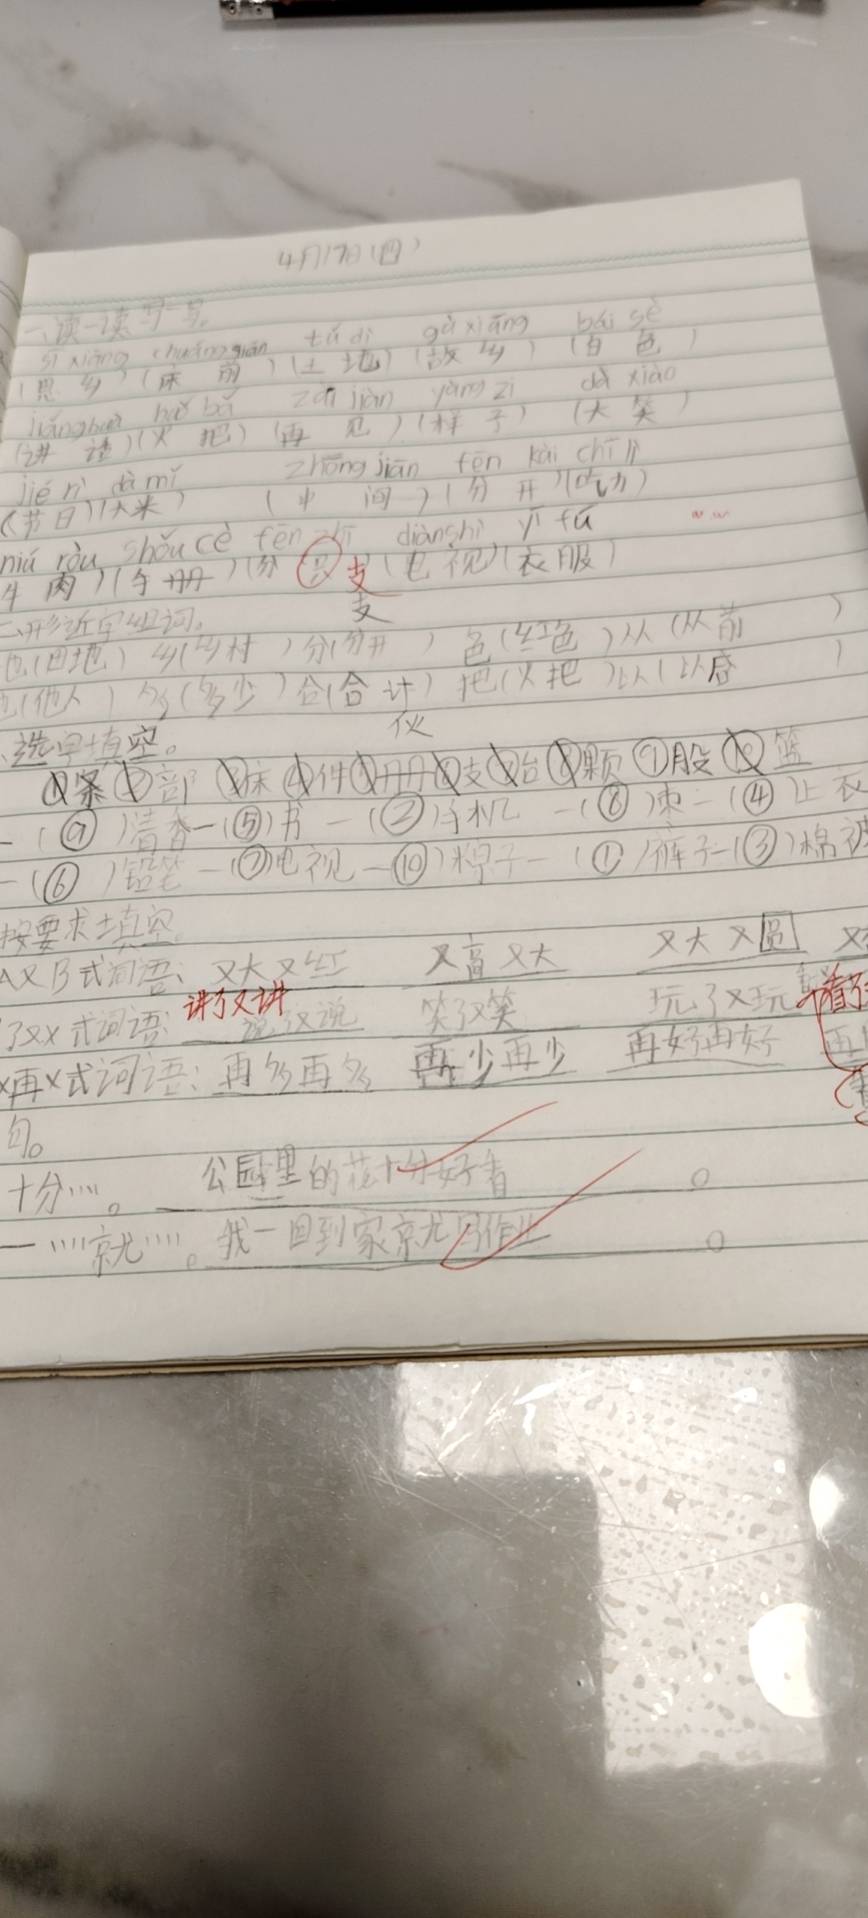 4月17日(四)
一、读一读写一写。
sī xiāng chuáng qián tǔ dì gù xiāng bái sè
(思乡)(床前)(土地)(故乡)(白色)
jiǎng huà huǒ bǎ zài jiàn yàng zi dà xiào
(讲话)(火把)(再见)(样子)(大笑)
jié rì dà mǐ zhōng jiān fēn kāi chī lì
(节日)(大米)(中间)(分开)(吃力)
niú ròu shǒu cè fēn zhī diàn shì yī fú
牛肉)(手册)(分 支(电视)(衣服)
支
二、形近字组词。
也(田地)乡(乡村)分(分开)色(红色)从(从前)
也(他人)多(多少)合(合计)把(火把)以(以后)
伙
、选单填空。
①条②部③床④件⑤册⑥支⑦台⑧颗⑨股⑩篮
一(⑨)清香一(⑤)书一(②)手机一(⑧)枣一(④)上衣
一(⑥)铅笔一(⑦)电视一(⑩)粽子一(①)裤子一(③)棉被
按要求填空。
A又B式词语、又大又红 又高又大 又大又圆 又
讲了又讲
了又X式词语: 说了又说 笑了又笑 玩了又玩 看了
X再X式词语: 再多再多 再少再少 再好再好 再
句。
十分……。 公园里的花十分好看。
一……就……。我一回到家就写作业。